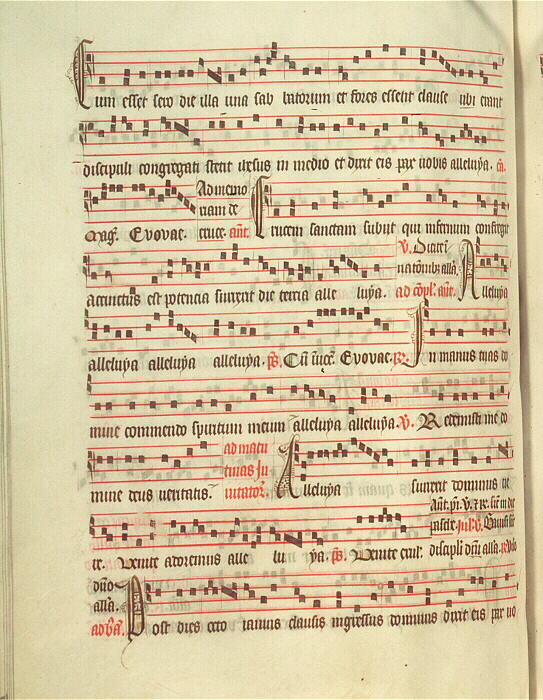 Cum esset sero die illa una sabbatorum et fores essent clause ubi erant
discipuli congregati stetit ihesus in medio et dixit eis pax vobis alleluya. 
Mag. Evovae. Ad memoriam de cruce. añt. Crucem sanctam subiit qui infernum confregit
accinctus est potencia surrexit die tercia alleluya. ad cõpl. añt. Alleluya
alleluya alleluya alleluya. ps. Cũ Evovae. In manus tuas do
mine commendo spiritum meum alleluya alleluya. V. Redemisti me do
mine deus veritatis. ad matutinas Invitator. Alleluya surrexit dominus ve
re. Venite adoremus alleluya. ps. Venite exul.
dño alla.
ad Post dies octo ianuis clausis ingressus dominus dixit eis pax vo